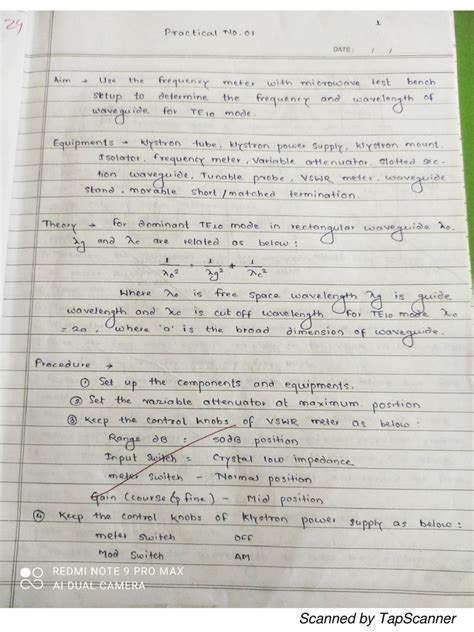 24
1
Practical No. 01
DATE: / /
Aim → Use the frequency meter with microwave test bench
setup to determine the frequency and wavelength of
waveguide for TE10 mode.
Equipments → klystron tube, klystron power supply, klystron mount,
Isolator, frequency meter, variable attenuator, slotted sec-
tion waveguide, Tunable probe, VSWR meter, waveguide
stand, movable short/matched termination.
Theory → for dominant TE10 mode in rectangular waveguide λo,
λg and λc are related as below:
1/λo² = 1/λg² + 1/λc²
Where λo is free space wavelength λg is guide
wavelength and λc is cut off wavelength for TE10 mode λc
= 2a, where 'a' is the broad dimension of waveguide.
Procedure →
① Set up the components and equipments.
② Set the variable attenuator at maximum position
③ Keep the control knobs of VSWR meter as below:
Range dB = 50dB position
Input switch = Crystal low impedance
meter switch - Normal position
Gain (course & fine) - Mid position
④ Keep the control knobs of klystron power supply as below:
meter switch OFF
Mod Switch AM
REDMI NOTE 9 PRO MAX
AI DUAL CAMERA
Scanned by TapScanner